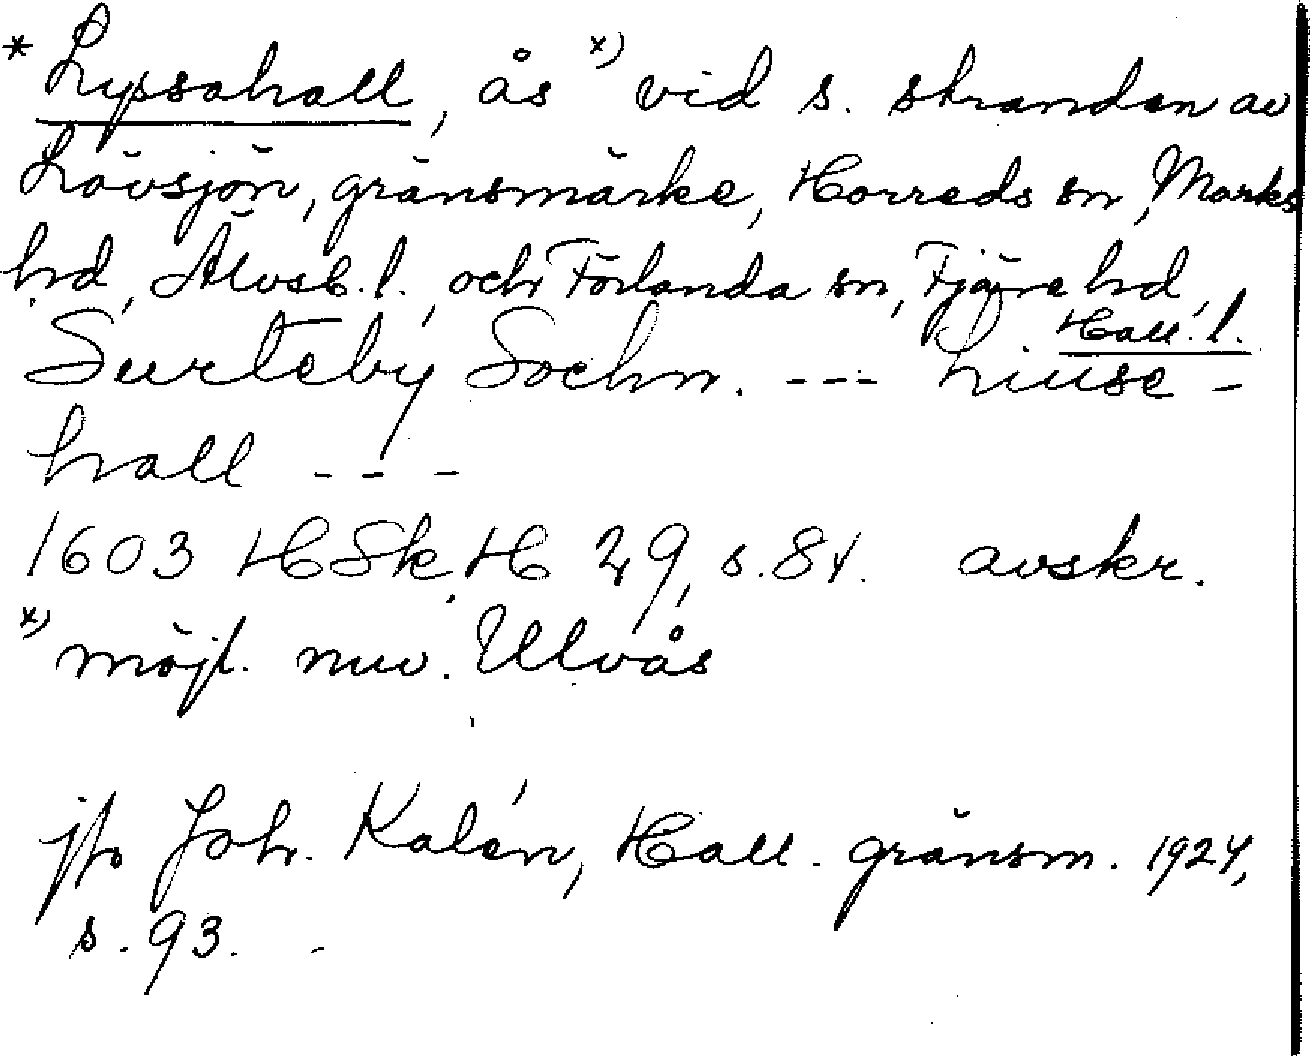 * Lyssahall, ås x) vid s. stranden av
Lövsjön, gränsmärke, Horreds sn, Marks
hd, Älvsb. l., och Förlanda sn, Fjäre hd,
Hall. l.
Surteby Sochn. --- Liuse-
hall ---
1603 HSkH 29, s. 84. avskr.
x) möjl. nuv. Ulvås
jfr Joh. Kalén, Hall. gränsm. 1924,
s. 93.